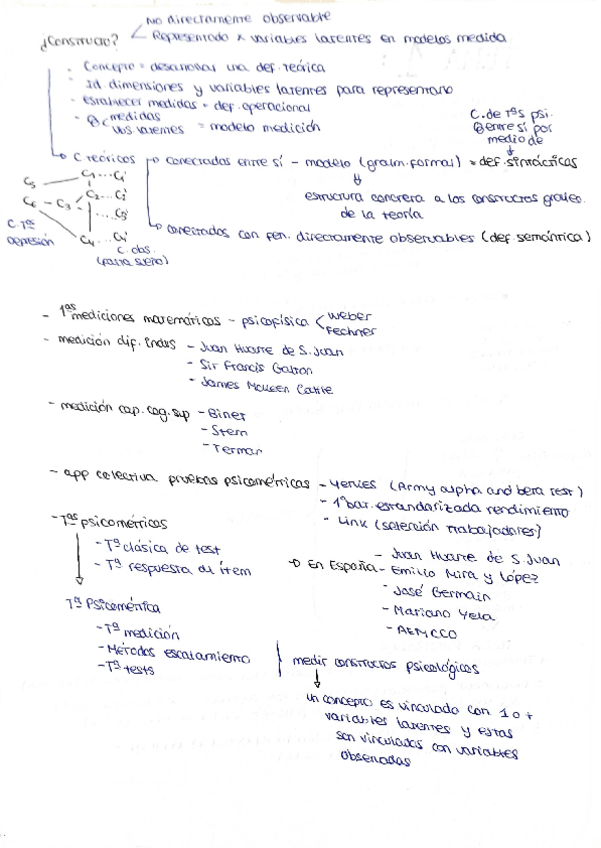 ¿Constructo?
No directamente observable
Representado x variables latentes en modelos medida
- Concepto = desarrollar una def. teórica
- Id dimensiones y variables latentes para representarlo
- establecer medidas = def. operacional
medidas
vbs latentes = modelo medición
C. de Tªs psi.
entre sí por
medio de
C teóricos
conectados entre sí - modelo (gralm. formal) = def. sintácticas
estructura concreta a los constructos
de la teoría
conectados con fen. directamente observables (def. semántica)
C5 C1...C1'
C6 - C3 C2...C2'
...C3'
C4...C4'
C. Tª
Depresión
C. obs.
(falta sueño)
- 1ªs mediciones matemáticas - psicofísica
Weber
Fechner
- medición dif. Indivs - Juan Huarte de S. Juan
- Sir Francis Galton
- James McKeen Cattell
- medición cap. cog. sup - Binet
- Stern
- Terman
- app colectiva pruebas psicométricas - Yerkes (Army alpha and beta test)
- 1ª bat. estandarizada rendimiento
- Link (selección trabajadores)
- Tªs psicométricas
- Tª clásica de test
- Tª respuesta al ítem
En España - Juan Huarte de S. Juan
- Emilio Mira y López
- José Germain
- Mariano Yela
- AEMCCO
Tª Psicométrica
- Tª medición
- Métodos escalamiento
- Tª tests
medir constructos psicológicos
un concepto es vinculado con 1 o +
variables latentes y estas
son vinculadas con variables
observadas